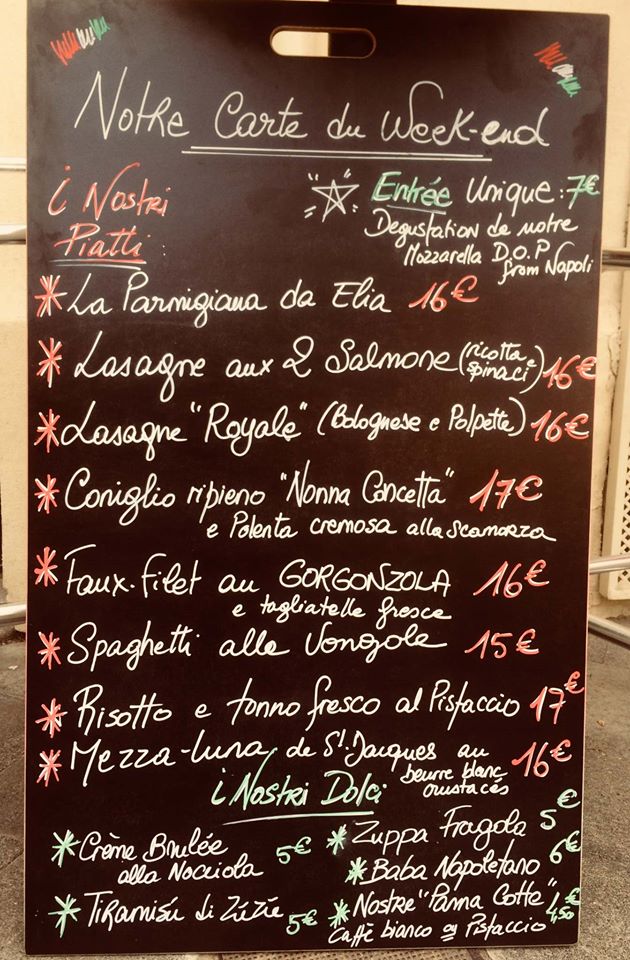 Notre Carte du Week-end
i Nostri
Piatti:
Entrée Unique: 7€
Degustation de notre
Mozzarella D.O.P
from Napoli
* La Parmigiana da Elia 16€
* Lasagne aux 2 Salmone (ricotta e spinaci) 16€
* Lasagne "Royale" (Bolognese e Polpette) 16€
* Coniglio ripieno "Nonna Concetta" 17€
e Polenta cremosa alla scamorza
* Faux-filet au GORGONZOLA 16€
e tagliatelle fresce
* Spaghetti alle Vongole 15€
* Risotto e tonno fresco al Pistaccio 17€
* Mezza-luna de St. Jacques au 16€
beurre blanc
crustacés
i Nostri Dolci
* Crème Brulée
alla Nocciola 5€
* Tiramisú di Zizie 5€
* Zuppa Fragola 5€
* Baba Napoletano 6€
* Nostre "Panna Cotte" 4,50€
Caffè bianco o Pistaccio